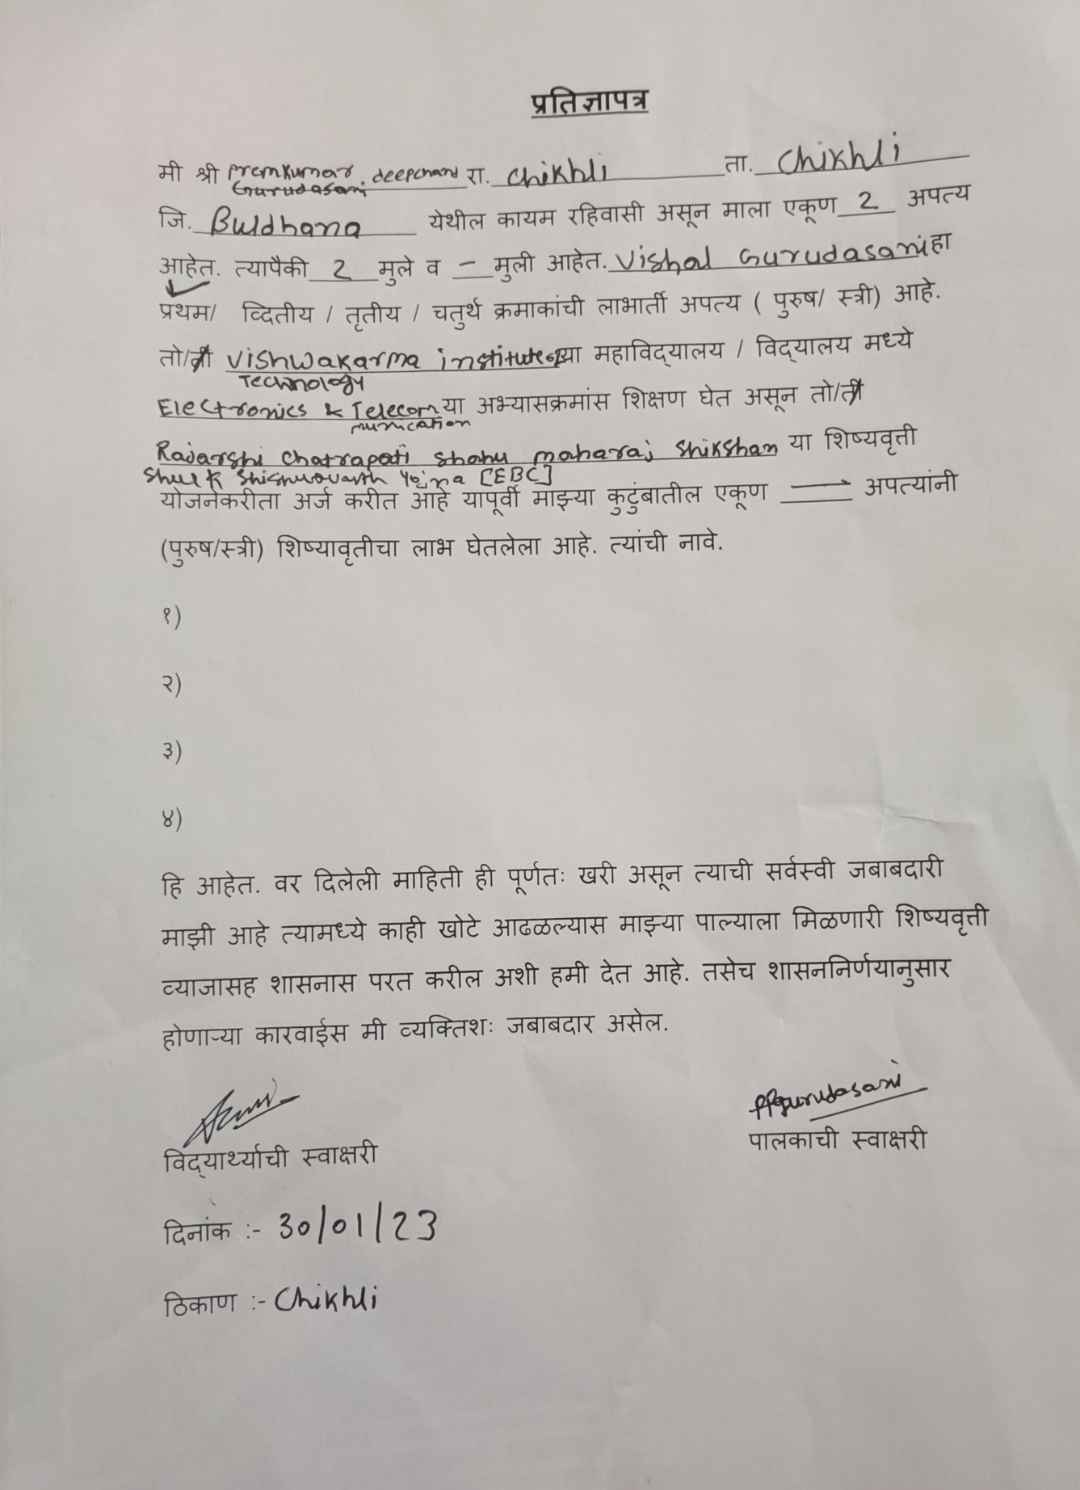 प्रतिज्ञापत्र
मी श्री Premkumar deepchand रा. Chikhli ता. Chikhli
Gurudasani
जि. Buldhana येथील कायम रहिवासी असून माला एकूण 2 अपत्य
आहेत. त्यापैकी 2 मुले व - मुली आहेत. Vishal Gurudasani हा
प्रथम/ व्दितीय / तृतीय / चतुर्थ क्रमाकांची लाभार्ती अपत्य ( पुरुष/ स्त्री) आहे.
तो/ती Vishwakarma institute of या महाविद्यालय / विद्यालय मध्ये
Technology
Electronics & Telecom या अभ्यासक्रमांस शिक्षण घेत असून तो/ती
munication
Rajarshi Chatrapati Shahu maharaj Shiksham या शिष्यवृत्ती
[EBC]
योजनेकरीता अर्ज करीत आहे यापूर्वी माझ्या कुटुंबातील एकूण — अपत्यांनी
(पुरुष/स्त्री) शिष्यावृतीचा लाभ घेतलेला आहे. त्यांची नावे.
१)
२)
३)
४)
हि आहेत. वर दिलेली माहिती ही पूर्णतः खरी असून त्याची सर्वस्वी जबाबदारी
माझी आहे त्यामध्ये काही खोटे आढळल्यास माझ्या पाल्याला मिळणारी शिष्यवृत्ती
व्याजासह शासनास परत करील अशी हमी देत आहे. तसेच शासननिर्णयानुसार
होणाऱ्या कारवाईस मी व्यक्तिशः जबाबदार असेल.
PPgurudasani
विद्यार्थ्याची स्वाक्षरी पालकाची स्वाक्षरी
दिनांक :- 30/01/23
ठिकाण :- Chikhli